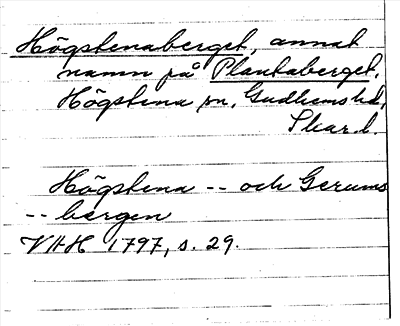 Högstenaberget, annat
namn på Plantaberget.
Högstena sn, Gudhems hd,
Skar. l.
Högstena -- och Gerums
-- bergen
VHH 1797, s. 29.